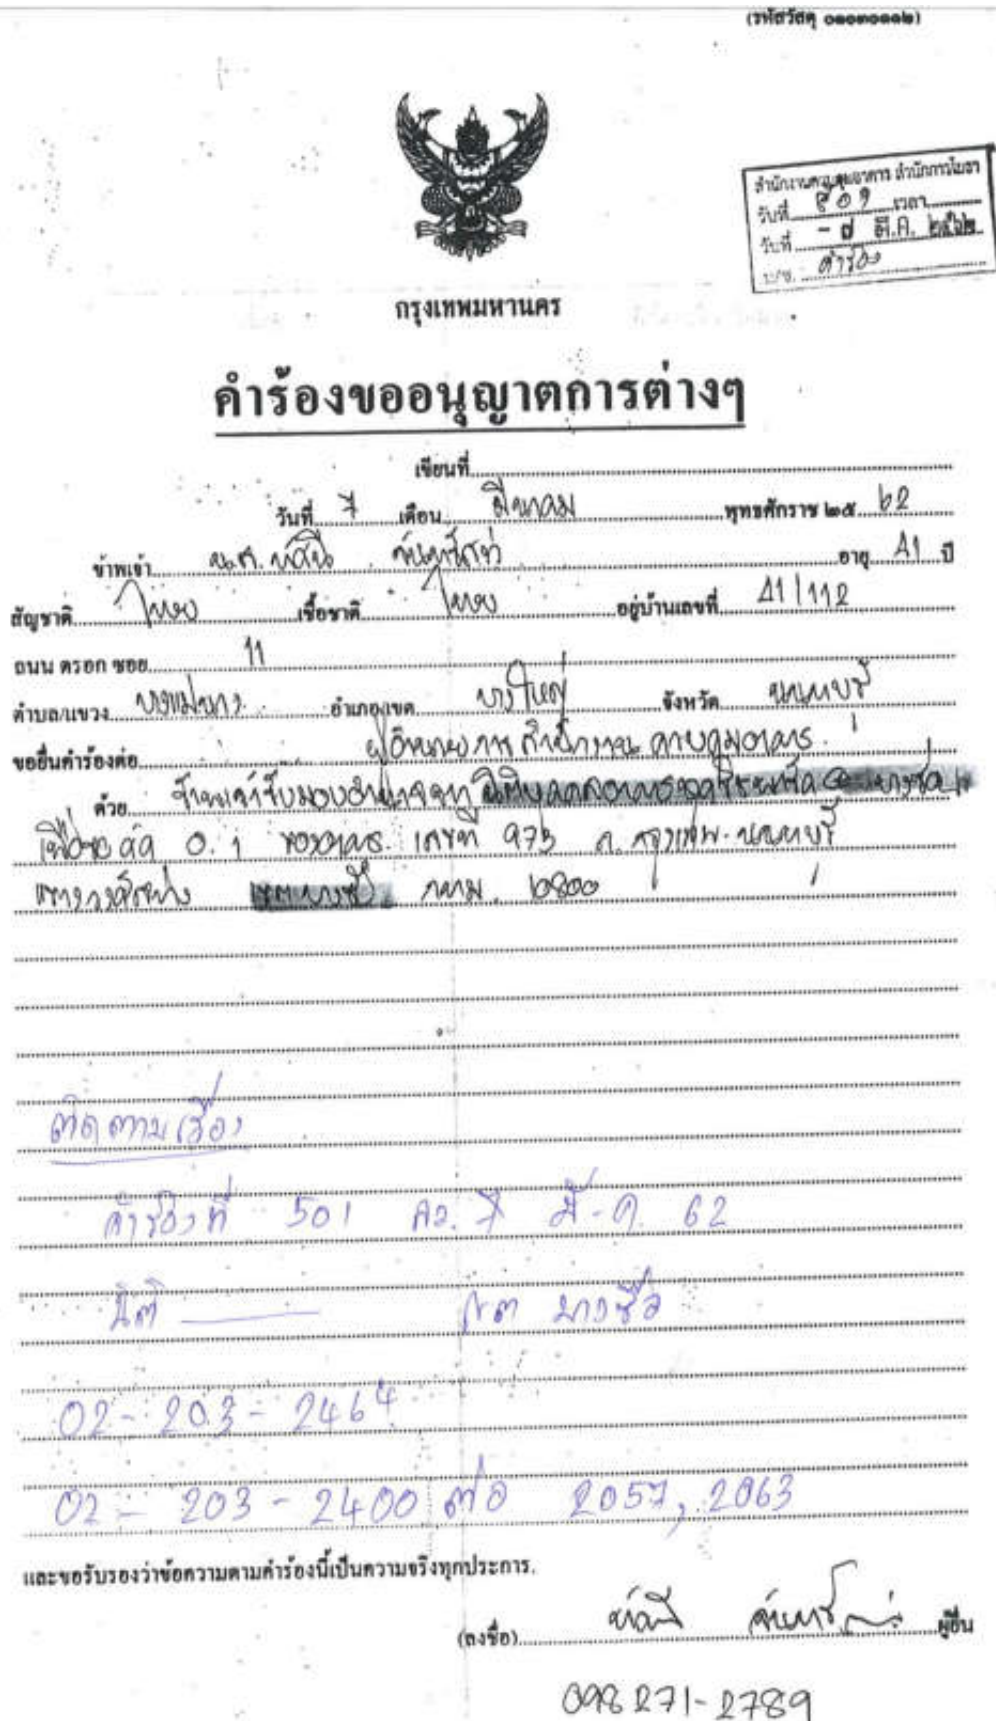 (รหัสวัสดุ ๐๑๐๓๐๑๑๒)
สำนักงานควบคุมอาคาร สำนักการโยธา
วันที่ ๕๐๑ เวลา
วันที่ - ๗ มี.ค. ๒๕๖๒
คำร้อง
กรุงเทพมหานคร
คำร้องขออนุญาตการต่างๆ
เขียนที่
วันที่ 7 เดือน มีนาคม พุทธศักราช ๒๕ 62
ข้าพเจ้า น.ส. อายุ 41 ปี
สัญชาติ ไทย เชื้อชาติ ไทย อยู่บ้านเลขที่ 41/112
ถนน ตรอก ซอย 11
ตำบล/แขวง บางแม่นาง อำเภอ/เขต บางใหญ่ จังหวัด นนทบุรี
ขอยื่นคำร้องต่อ ผู้อำนวยการสำนักงานควบคุมอาคาร
ด้วย ข้าพเจ้ารับมอบอำนาจจาก นิติบุคคลอาคารชุด
เพื่อขอคัด อ. 1 ของอาคาร เลขที่ 973 ถ. กรุงเทพ-นนทบุรี
แขวงวงศ์สว่าง เขตบางซื่อ กทม.
ติดตามเรื่อง
คำร้องที่ 501 ลว. 7 มี.ค. 62
นิติ เขต บางซื่อ
02-203-2464
02-203-2400 ต่อ 2057, 2063
และขอรับรองว่าข้อความตามคำร้องนี้เป็นความจริงทุกประการ.
(ลงชื่อ) ผู้ยื่น
098 271-2789